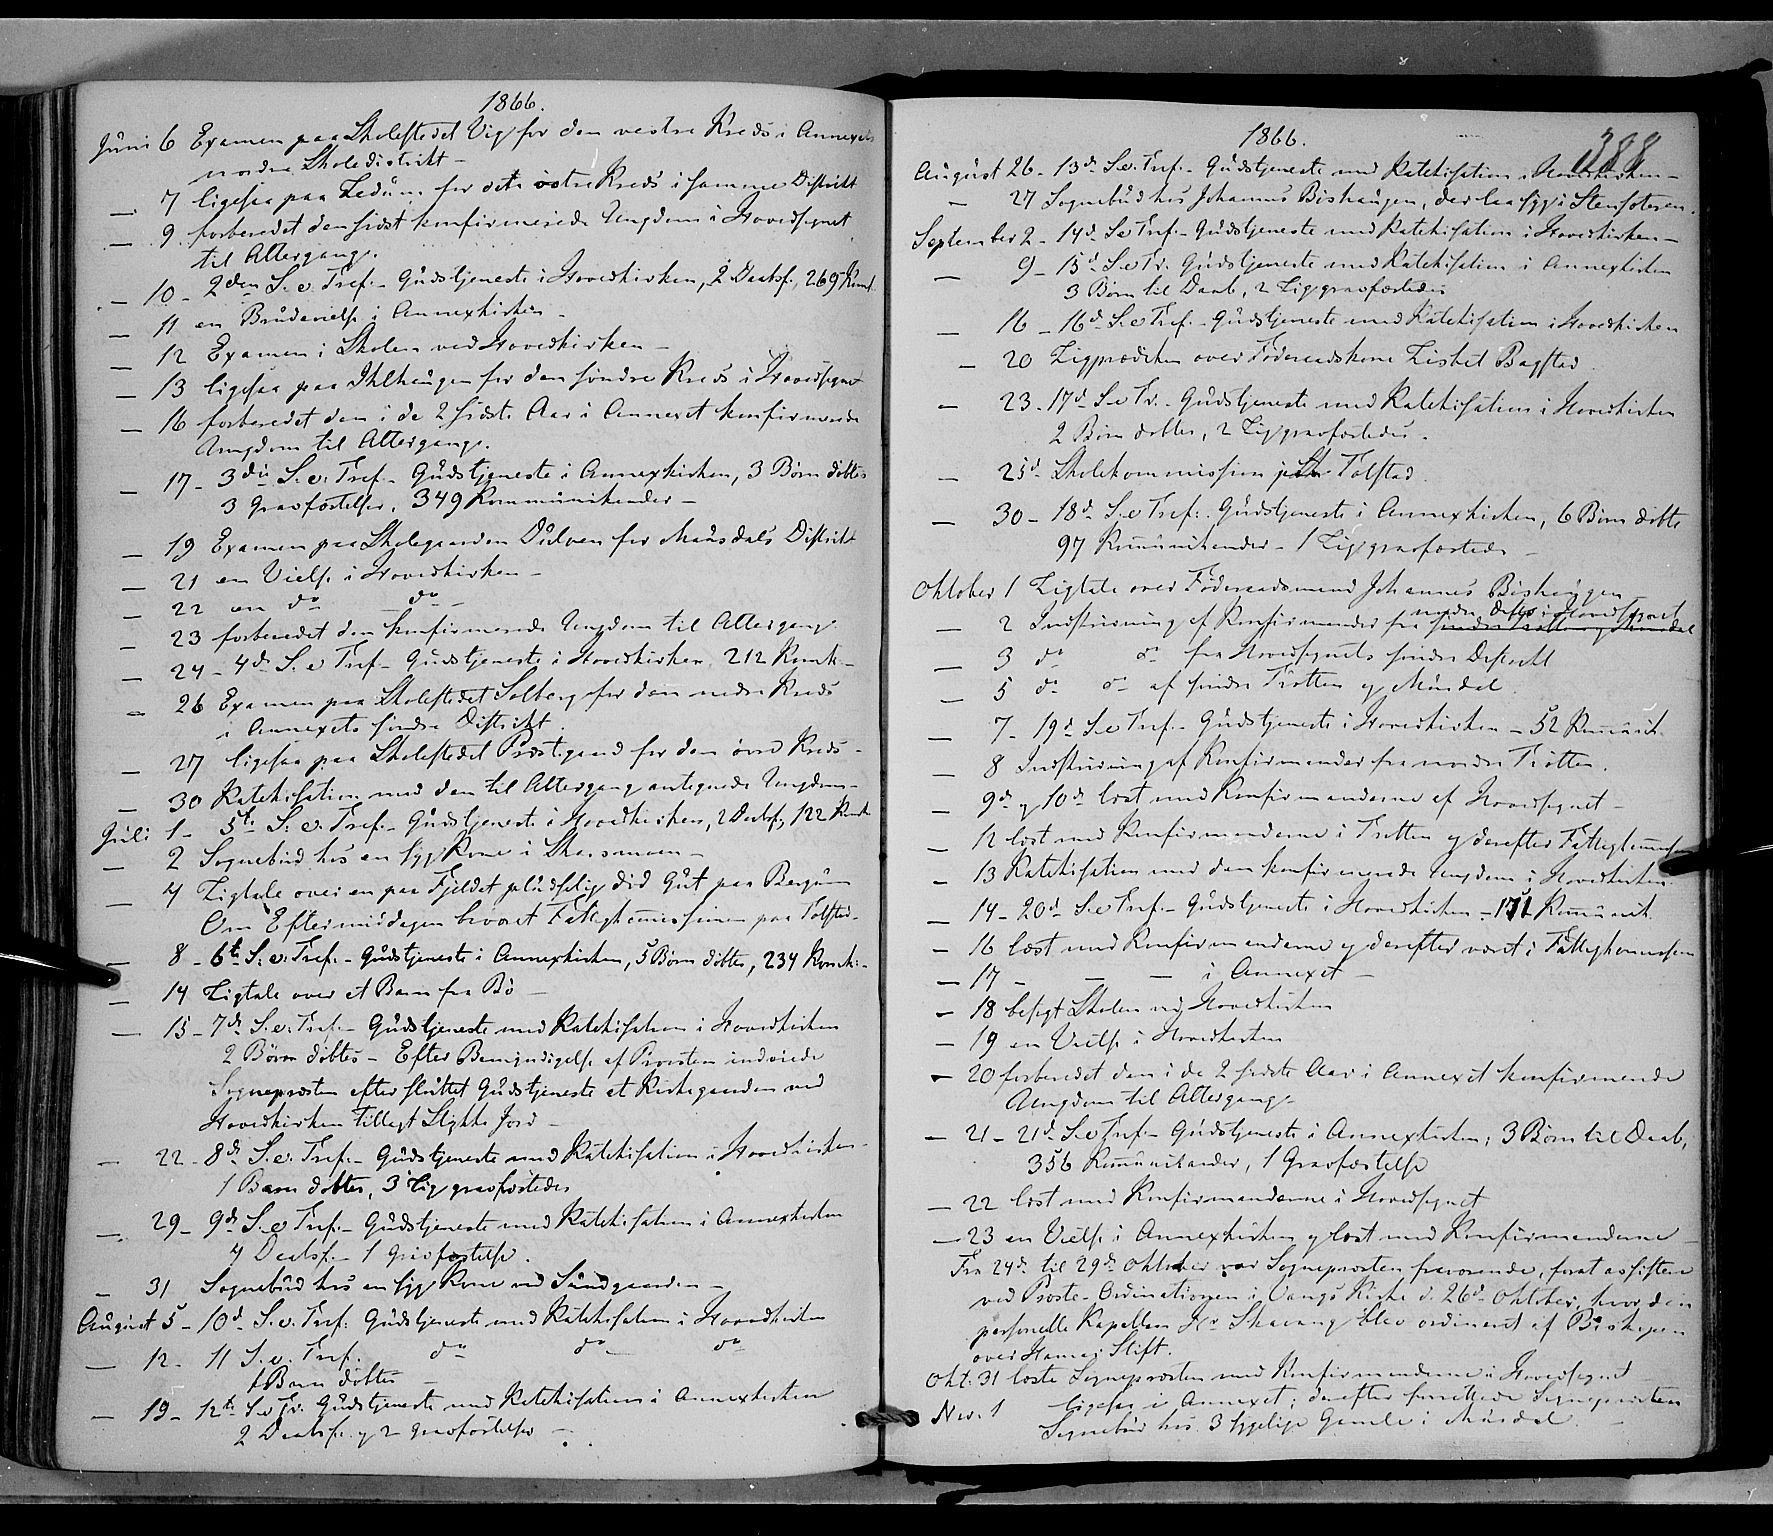 1866.
Juni 6 Examen paa Skolestedet Vig for den vestre Kreds i Annexets
nordre Skoledistrikt –
— 7 ligesaa paa Ledum for dets østre Kreds i samme Distrikt
— 9. forberedet den sidst konfirmerede Ungdom i Hovedsognet
til Altergang.
— 10 – 2den S. e. Tref. – Gudstjeneste i Hovedkirken, 2 Daabsf., 269 Komk.
— 11 en Brudevielse i Annexkirken –
— 12 Examen i Skolen ved Hovedkirken –
— 13 ligesaa paa Ihlhaugen for den søndre Kreds i Hovedsognet
— 16 forberedet den i de 2 sidste Aar i Annexet konfirmerede
Ungdom til Altergang.
— 17 – 3die S. e. Tref. – Gudstjeneste i Annexkirken, 3 Børn døbtes
3 Gravfæstelser, 349 Kommunikander –
— 19 Examen paa Skolegaarden Dulven for Mausdals Distrikt
— 21 en Vielse i Hovedkirken –
— 22 en do do –
— 23 forberedet den konfirmerede Ungdom til Altergang.
— 24 – 4de S. e. Tref. – Gudstjeneste i Hovedkirken 212 Komk. –
— 26 Examen paa Skolestedet Solberg for den nedre Kreds
i Annexets søndre Distrikt
— 27 ligesaa paa Skolestedet Præstgaard for den øvre Kreds –
— 30 Katekisation med den til Altergang antegnede Ungdom –
Juli 1 – 5te S. e. Tref. – Gudstjeneste i Hovedkirken, 2 Daabsf., 122 Komk
— 2 Sognebud hos en syg Kone i Skarsmoen –
— 4 Ligtale over en paa Fjeldet pludselig død Gut paa Bergum
Om Eftermiddagen bivaanet Fattigkommissionen paa Tolstad –
— 8 – 6te S. e. Tref. – Gudstjeneste i Annexkirken, 5 Børn døbtes, 234 Komk. –
— 14 Ligtale over et Barn fra Bø –
— 15 – 7de S. e. Tref. – Gudstjeneste med Katekisation i Hovedkirken
2 Børn døbtes – Efter Bemyndigelse af Provsten indviede
Sognepræsten efter sluttet Gudstjeneste et Kirkegaarden ved
Hovedkirken tillagt Stykke Jord –
— 22 – 8de S. e. Tref. – Gudstjeneste med Katekisation i Hovedkirken –
1 Barn døbtes, 3 Lig gravfæstedes
— 29 – 9de S. e. Tref. – Gudstjeneste med Katekisation i Annexkirken
4 Daabsf. – 1 Gravfæstelse.
— 31 Sognebud hos en syg Kone ved Sundgaarden –
August 5 – 10de S. e. Tref. Gudstjeneste med Katekisation i Hovedkirken
— 12 – 11 S. e. Tref. do do do
1 Barn døbtes –
— 19 – 12te S. e. Tr. Gudstjeneste med Katekisation i Annexkirken
2 Daabsf. og 2 Gravfæstelser –
1866. 388
August 26 – 13de S. e. Tref. – Gudstjeneste med Katekisation i Hovedkirken –
— 27 Sognebud hos Johannes Bøshaugen, der laa syg i Stensæteren.
September 2 – 14de S. e. Tref. – Gudstjeneste med Katekisation i Hovedkirken –
— 9 – 15de S. e. Tr. Gudstjeneste med Katekisation i Annexkirken
3 Børn til Daab, 2 Lig gravfæstedes
— 16 – 16de S. e. Tref. – Gudstjeneste med Katekisation i Hovedkirken
— 20 Ligprædiken over Føderaadskone Lisbet Bagstad
— 23 – 17de S. e. Tr. – Gudstjeneste med Katekisation i Hovedkirken
2 Børn døbtes, 2 Lig gravfæstedes.
— 25de Skolekommission paa Tolstad.
— 30 – 18de S. e. Tref. – Gudstjeneste i Annexkirken, 6 Børn døbte
97 Kommunikander – 1 Lig gravfæstedes –
Oktober 1 Ligtale over Føderaadsmand Johannes Bøshaugen
nordre Distr. i Hovedsognet
— 2 Indskrivning af Konfirmander fra søndre Trøtten og Musdal
— 3 do do fra Hovedsognets søndre Distrikt
— 5 do do af søndre Trøtten og Musdal.
— 7 – 19de S. e. Tref. – Gudstjeneste i Hovedkirken – 52 Kommunik.
— 8 Indskrivning af Konfirmander fra nordre Trøtten.
— 9de og 10de læst med Konfirmanderne af Hovedsognet –
— 12 læst med Konfirmanderne i Trøtten og derefter Fattigkommission
— 13 Katekisation med den konfirmerede Ungdom i Hovedkirken.
— 14 – 20de S. e. Tref. – Gudstjeneste i Hovedkirken – 171 Kommunik.
— 16 læst med Konfirmanderne og derefter været i Fattigkommission
— 17 – – – i Annexet –
— 18 besøgt Skolen ved Hovedkirken
— 19 en Vielse i Hovedkirken
— 20 forberedet den i de 2 sidste Aar i Annexet konfirmerede
Ungdom til Altergang –
— 21 – 21de S. e. Tref. – Gudstjeneste i Annexkirken; 3 Børn til Daab,
356 Kommunikander, 1 Gravfæstelse
— 22 læst med Konfirmanderne i Hovedsognet
— 23 en Vielse i Annexkirken og læst med Konfirmanderne –
Fra 24de til 29de Oktober var Sognepræsten fraværende, forat assistere
ved Præste-Ordinationen i Vangs Kirke d. 26de Oktober, hvor den
personelle Kapellan Hr. Skavang blev ordineret af Biskopen
over Hamar Stift.
Okt. 31 læste Sognepræsten med Konfirmanderne i Hovedsognet
Nov. 1 ligesaa i Annexet; derefter forrettede Sognepræsten
Sognebud hos 3 sygelige Gamle i Musdal.